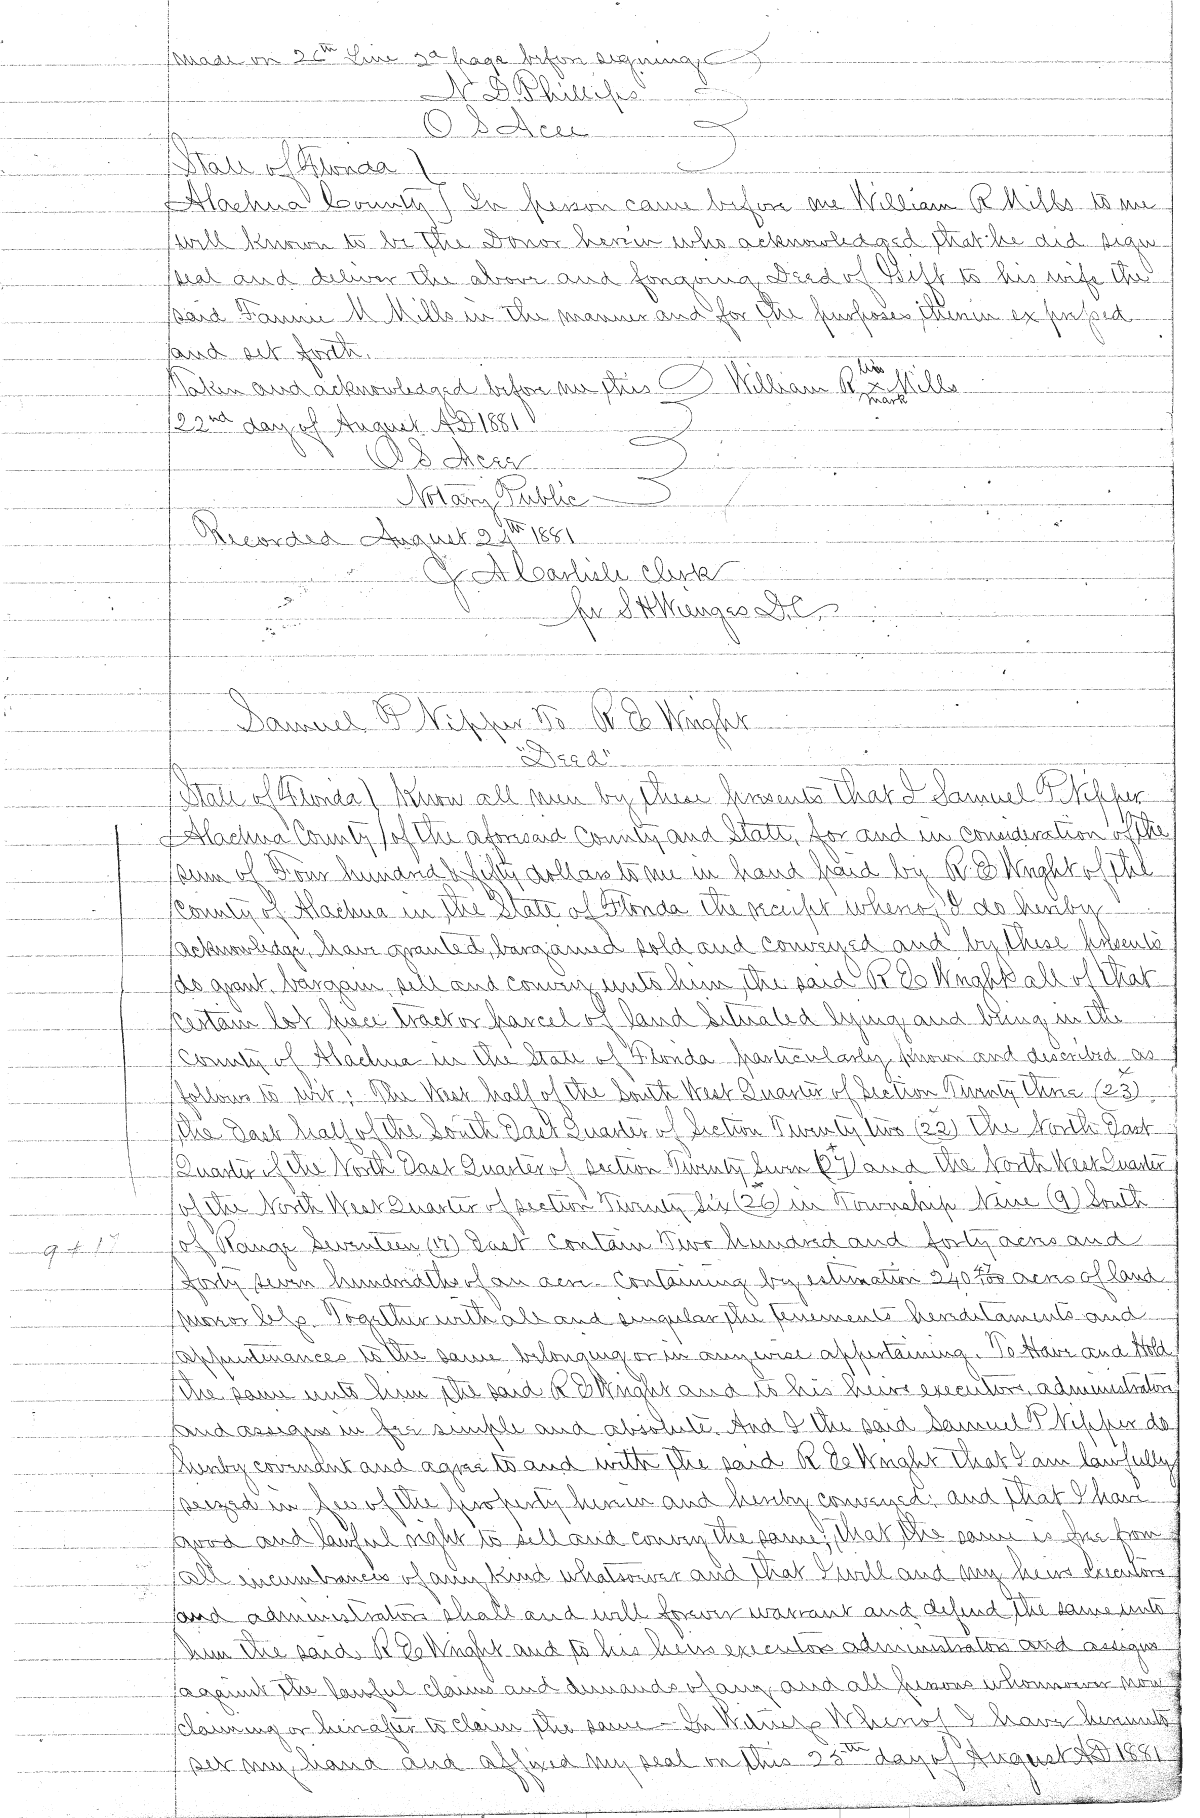 made on 26th Line 2d page before signing
N D Phillips
O S Acee
State of Florida
Alachua County In person came before me William R Mills to me
well known to be the Donor herein who acknowledged that he did sign
seal and deliver the above and forgoing Deed of Gift to his wife the
said Fannie M Mills in the manner and for the purposes therein expressed
and set forth.
Taken and acknowledged before me this William R his x mark Mills
22nd day of August AD 1881
O S Acee
Notary Public
Recorded August 24th 1881
J A Carlisle Clerk
pr S H Wienges D.C.
Samuel P Nipper To R E Wright
"Deed"
State of Florida Know all men by these presents that I Samuel P Nipper
Alachua County of the aforesaid County and State, for and in consideration of the
sum of Four hundred & fifty dollars to me in hand paid by R E Wright of the
County of Alachua in the State of Florida the receipt whereof I do hereby
acknowledge, have granted, bargained sold and conveyed and by these presents
do grant, bargain, sell and convey unto him, the said R E Wright all of that
certain lot piece tract or parcel of land situated lying and being in the
County of Alachua in the State of Florida particularly known and described as
follows to wit: The West half of the South West Quarter of Section Twenty three (23)
the East half of the South East Quarter of Section Twenty two (22) the North East
Quarter of the North East Quarter of section Twenty Seven (27) and the North West Quarter
of the North West Quarter of section Twenty Six (26) in Township Nine (9) South
9 + 17 of Range Seventeen (17) East contain Two hundred and forty acres and
forty seven hundredths of an acre - containing by estimation 240 47/100 acres of land
more or less. Together with all and singular the tenements hereditaments and
appurtenances to the same belonging or in anywise appertaining. To Have and Hold
the same unto him the said R E Wright and to his heirs executors, administrators
and assigns in fee simple and absolute. And I the said Samuel P Nipper do
hereby covenant and agree to and with the said R E Wright that I am lawfully
seized in fee of the property herein and hereby conveyed; and that I have
good and lawful right to sell and convey the same; that the same is free from
all incumbrances of any kind whatsoever and that I will and my heirs executors
and administrators shall and will forever warrant and defend the same unto
him the said R E Wright and to his heirs executors administrators and assigns
against the lawful claims and demands of any and all persons whomsoever now
claiming or hereafter to claim the same - In Witness Whereof I have hereunto
set my hand and affixed my seal on this 25th day of August AD 1881